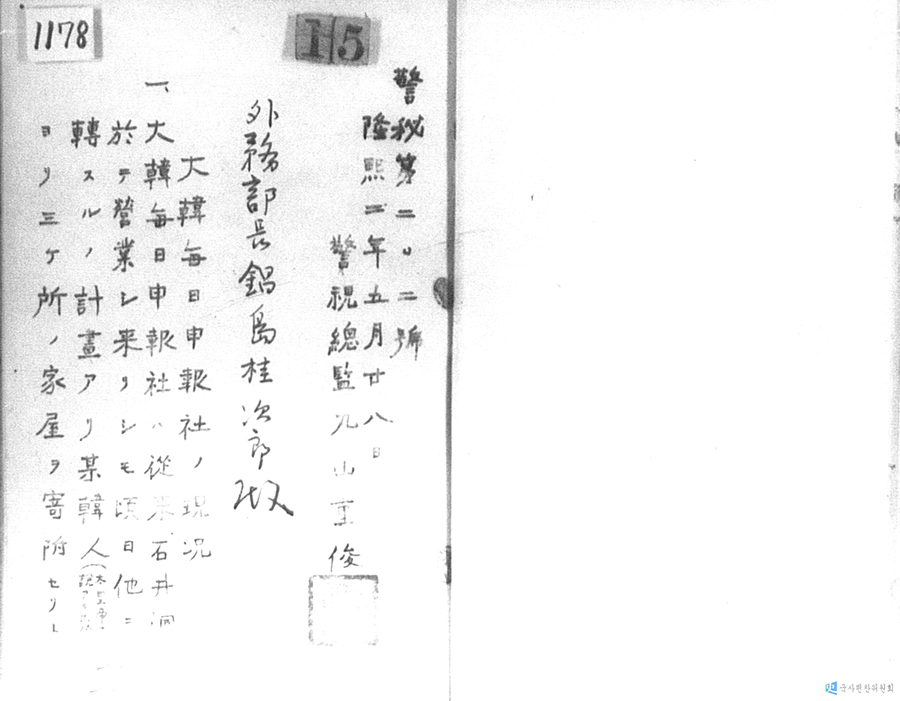 1178
15
警秘第二〇二號
隆熙二年五月廿八日
警視總監丸山重俊
外務部長鍋島桂次郎殿
大韓毎日申報社ノ現况
一、大韓毎日申報社ハ從来石井洞
於テ營業シ来リシモ頃日他ニ
轉スルノ計畫アリ某韓人(
ヨリ三ケ所ノ家屋ヲ寄附セリ
국사편찬위원회